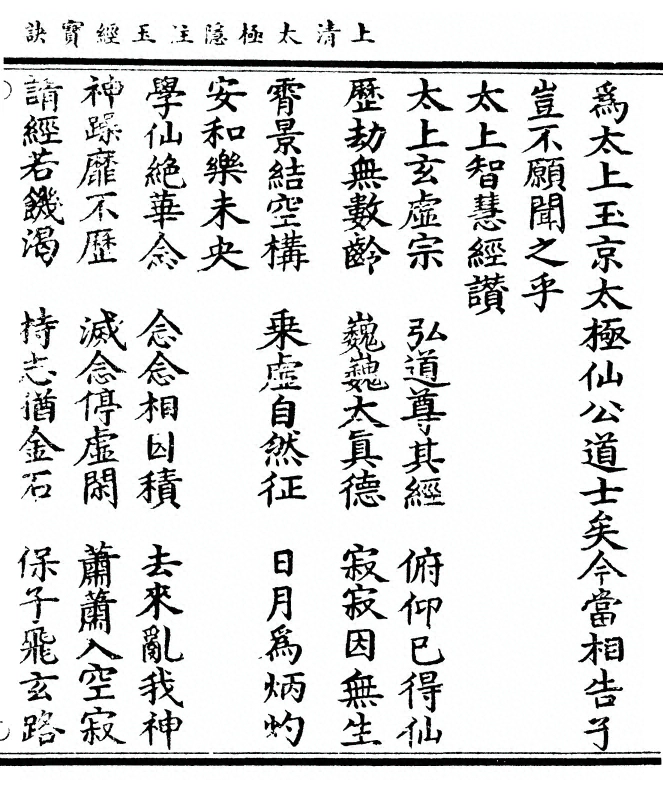 上清太極隱注玉經寳訣
爲太上玉京太極仙公道士矣今當相告子
豈不願聞之乎
太上智慧經讃
太上玄虚宗 弘道尊其經 俯仰已得仙
歷劫無數齡 巍巍太眞德 寂寂因無生
霄景結空構 乗虚自然征 日月爲炳灼
安和樂未央
學仙絶華念 念念相因積 去來亂我神
神躁靡不歷 滅念停虚閑 蕭蕭入空寂
請經若飢渴 持志猶金石 保子飛玄路